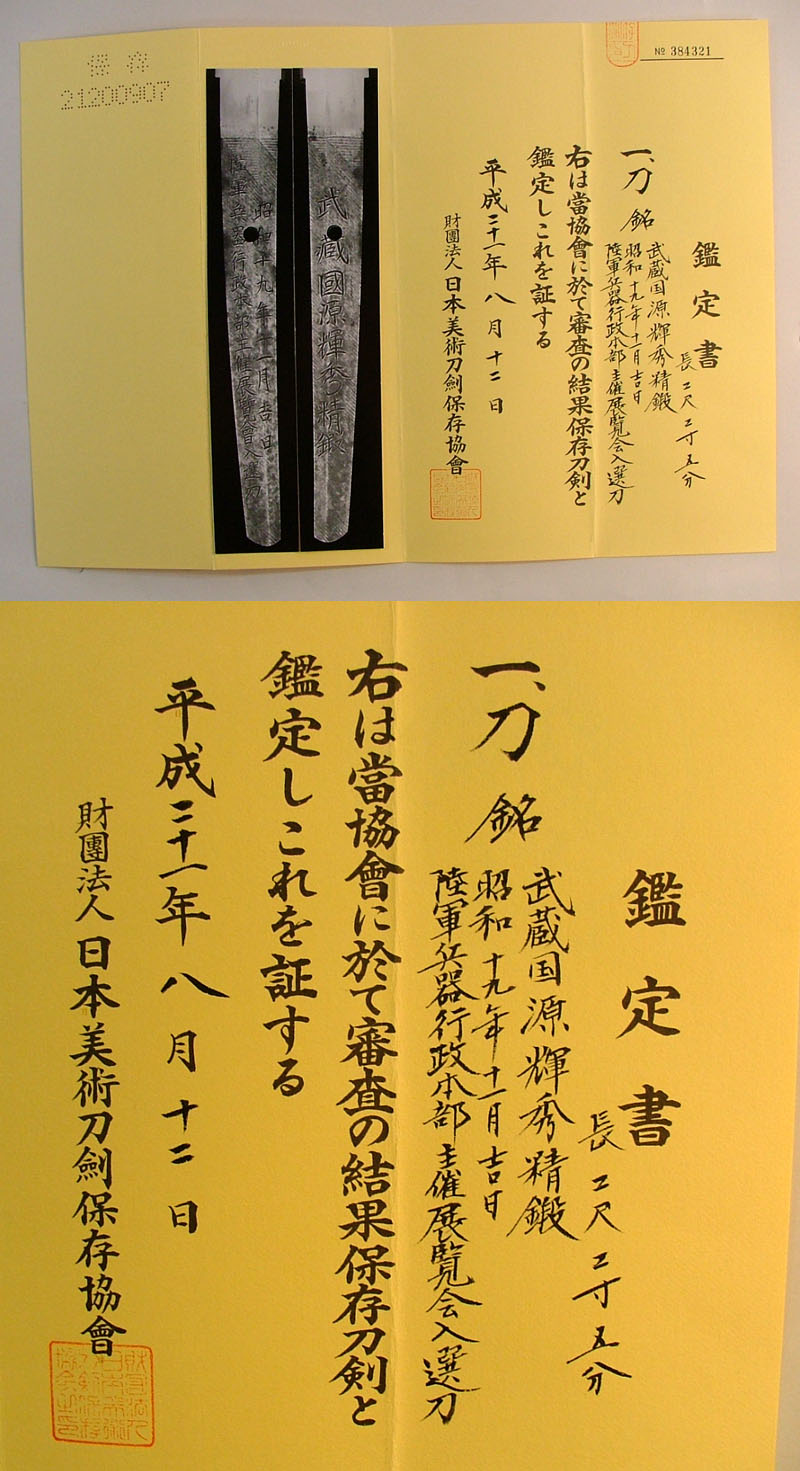 保存
21200907
№ 384321
鑑定書
長 二尺二寸五分
一、刀 銘
武蔵国源輝秀精鍛
昭和十九年十一月吉日
陸軍兵器行政本部主催展覧会入選刀
右は當協會に於て審査の結果保存刀剣と
鑑定しこれを証する
平成二十一年八月十二日
財團法人 日本美術刀劍保存協會
武蔵國源輝秀精鍛
昭和十九年十一月吉日
陸軍兵器行政本部主催展覧會入選刀
鑑定書
長 二尺二寸五分
一、刀 銘
武蔵国源輝秀精鍛
昭和十九年十一月吉日
陸軍兵器行政本部主催展覧会入選刀
右は當協會に於て審査の結果保存刀剣と
鑑定しこれを証する
平成二十一年八月十二日
財團法人 日本美術刀劍保存協會